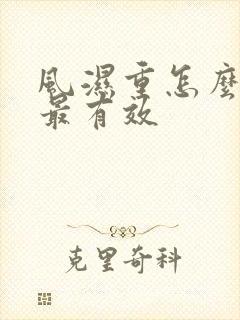 風濕重怎麼
最有效
克里奇科